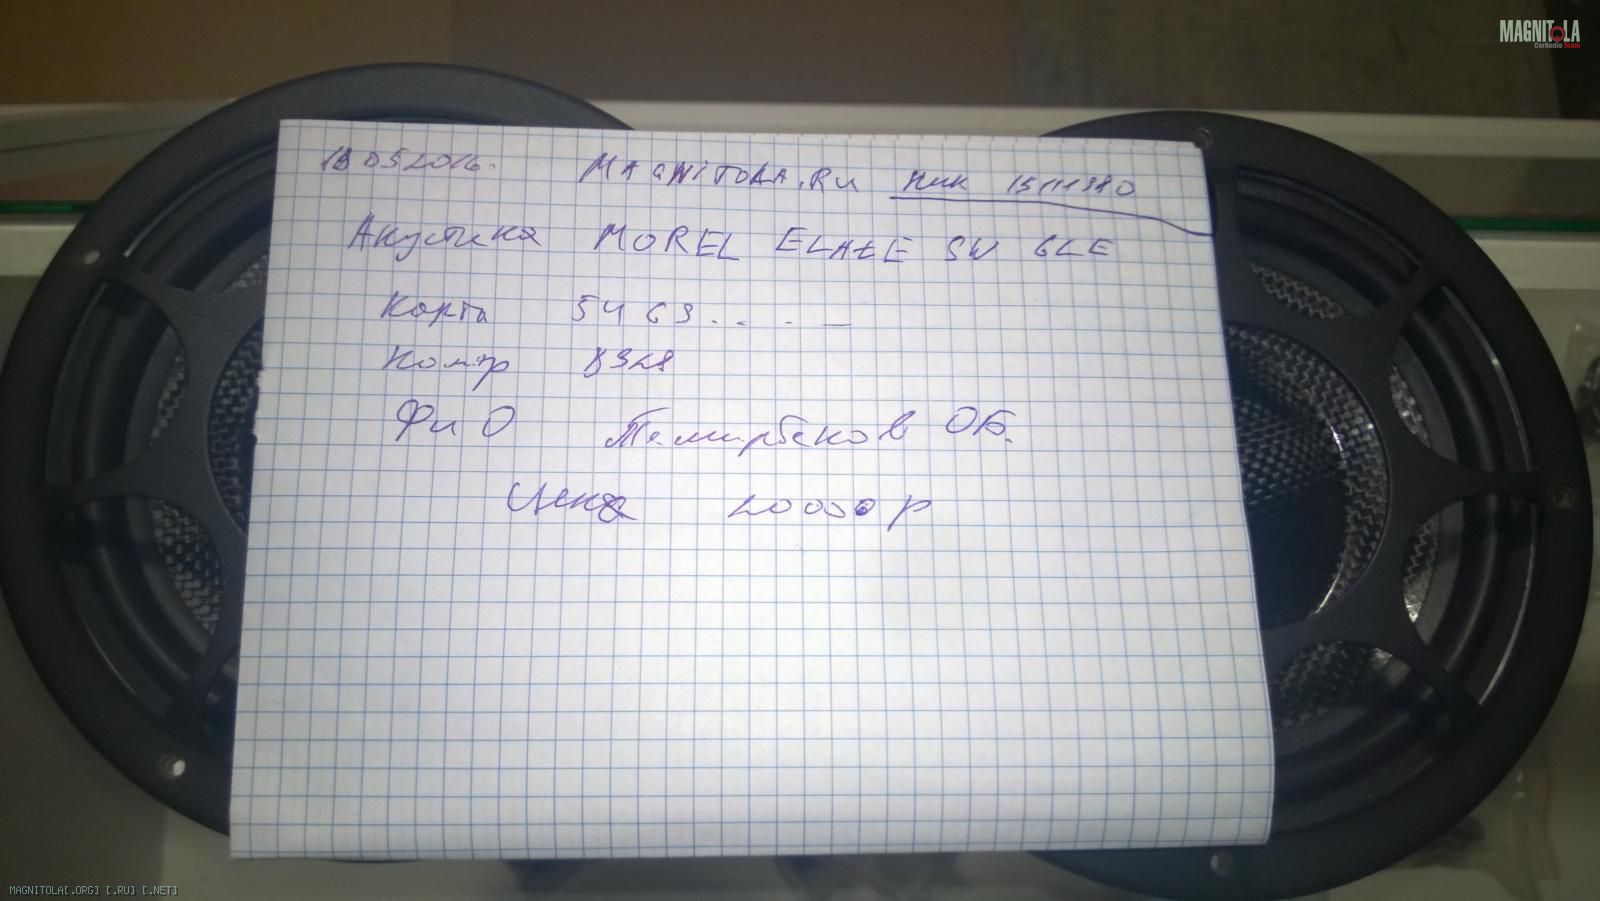 MAGNITOLA
CarAudio Team
18 05 2016.
MAGNITOLA.RU Ник 15111980
Акустика MOREL ELATE SW 6LE
Карта 5469....
8328
ФиО Темирбеков ОБ.
Цена 20000 р
MAGNITOLA[.ORG] [.RU] [.NET]